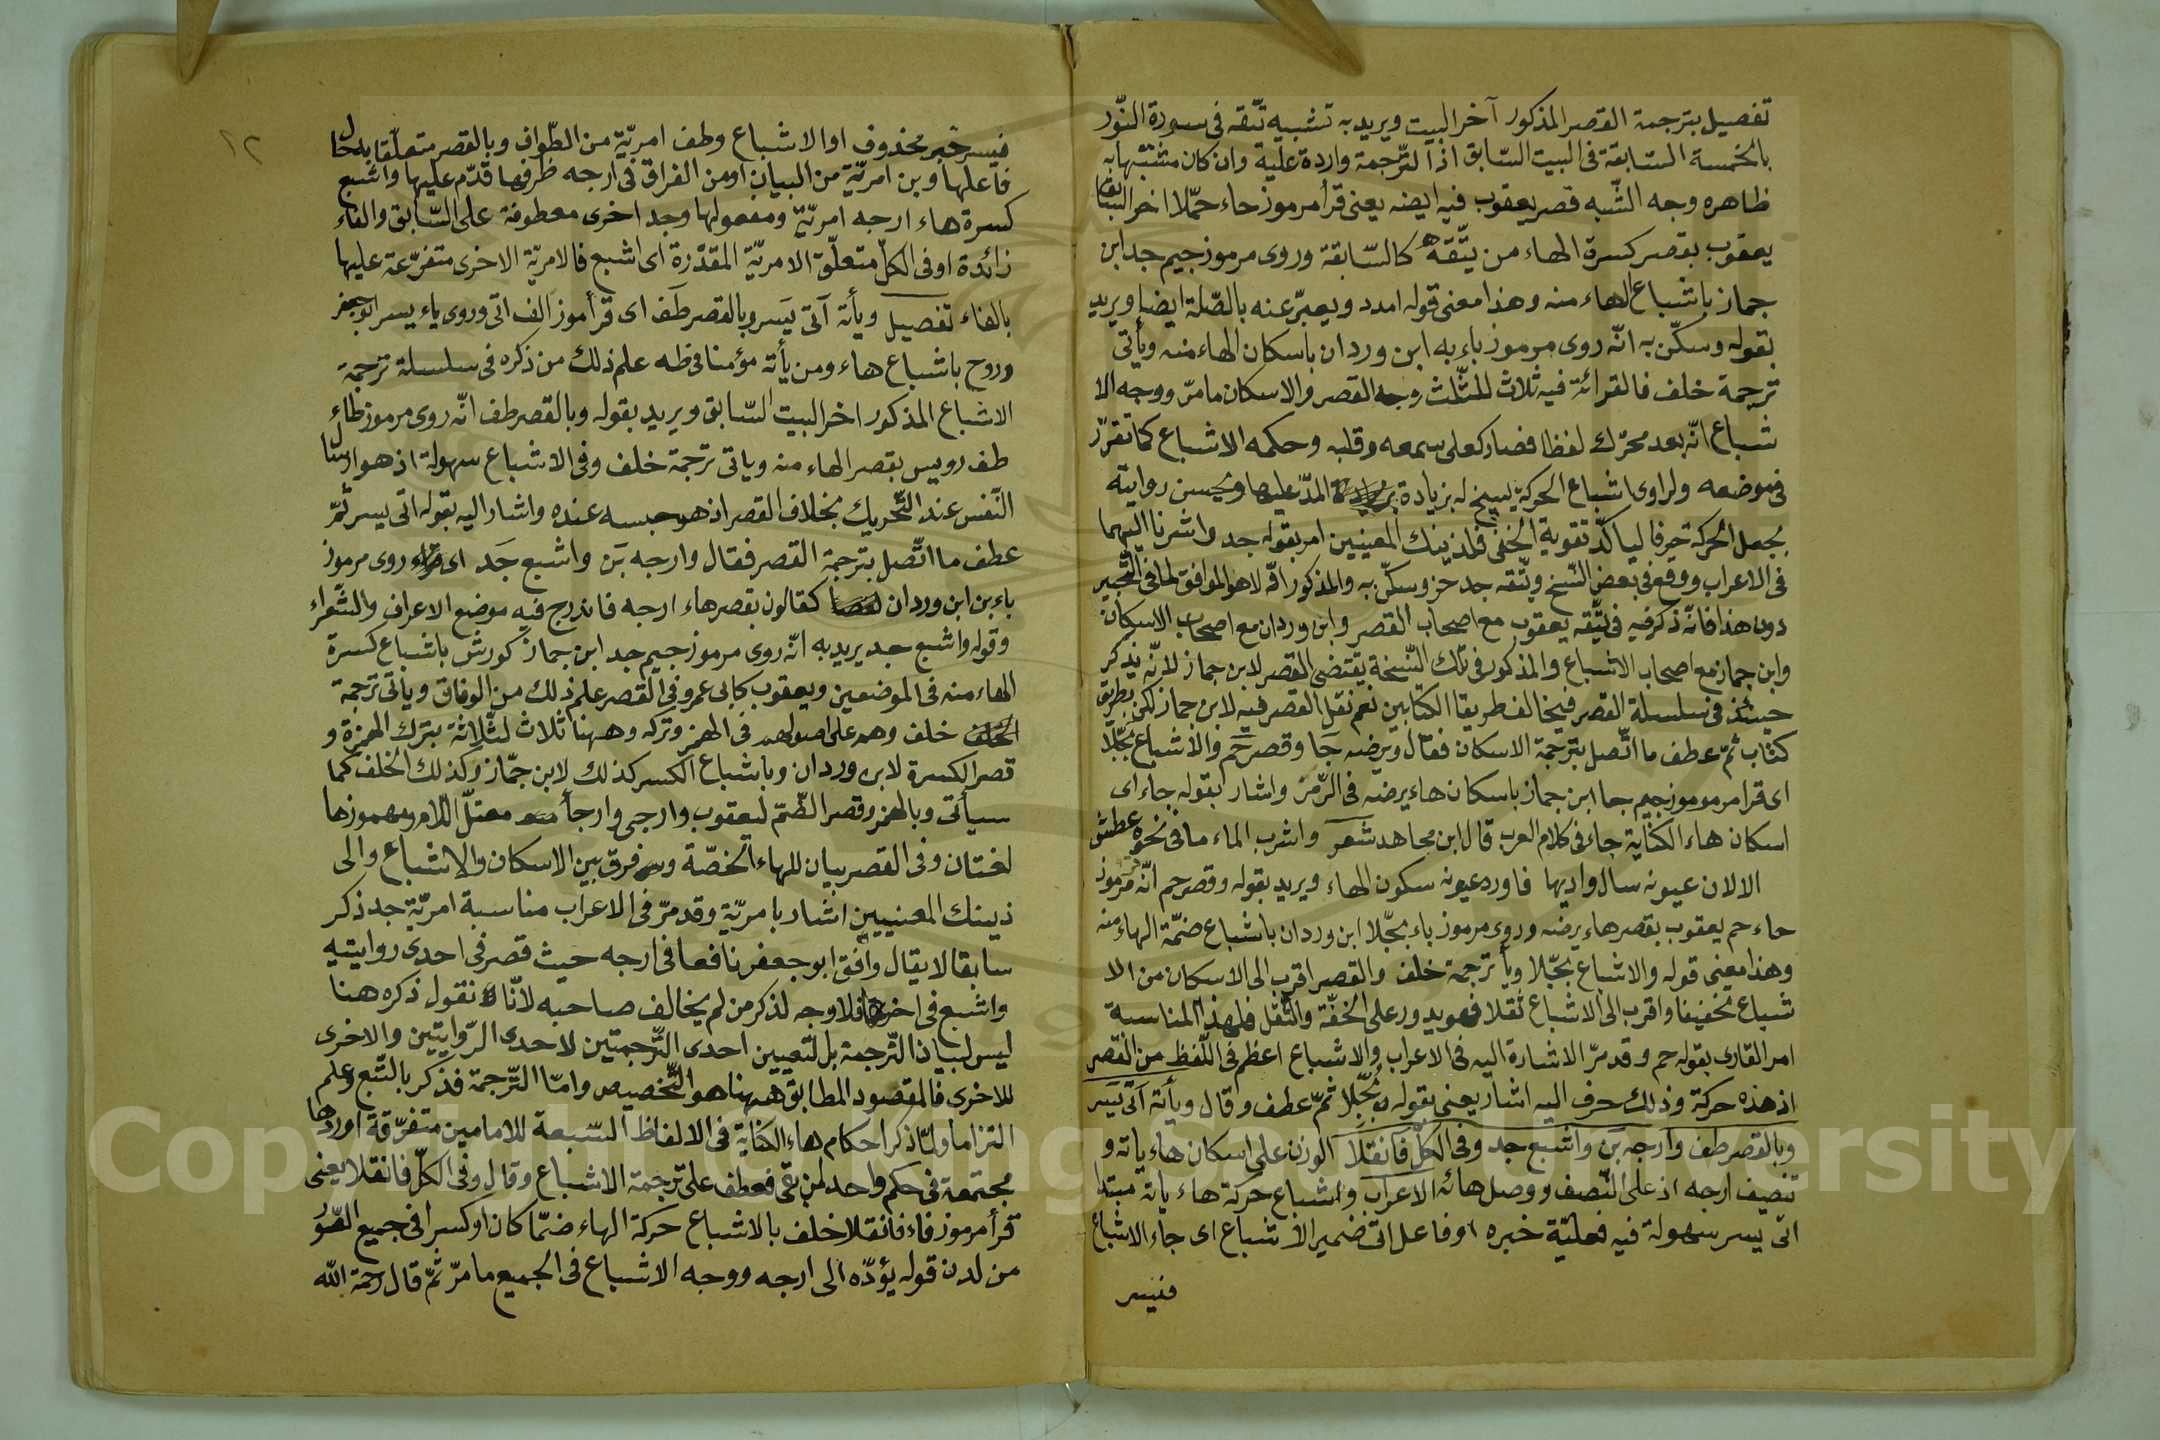 تفصيل بترجمة القصر المذكور آخر البيت ويريد به تشبيه تتّقه فى سورة النّور
بالخمسة السّابقة فى البيت السّابق اذ الترّجمة واردة علية وان كان مثبتها به
ظاهره وجه الشّبه قصر يعقوب فيه ايضه يعنى قرأ مرموز حاء حمّلا اخر السّابق
يعقوب بقصر كسرة الهاء من يتّقه كالسّابقة وروى مرموز جيم جد ابن
جماز باشباع الهاء منه وهذا معنى قوله امدد ويعبّر عنه بالصّلة ايضا ويريد
بقوله وسكّن به انّه روى مرموز باء به ابن وردان باسكان الهاء منه ويأتى
ترجمة خلف فالقرائة فيه ثلاث للثّلث وجه القصر والاسكان ما مرّ ووجه الا
شباع انّه بعد محرّك لفظا فصار كعلى سمعه وقلبه وحكمه الاشباع كما تقرّر
فى موضعه ولراوى اشباع الحركة يسخ له بزيادة المدّ عليها ويحسن روايته
بجعل الحركة حرفا لياكّد تقوية الخفى فلذينك المعنيين امر بقوله جد واشرنا اليهما
فى الاعراب ووقع فى بعض النّسخ ويتّقه جد حز وسكّن به والمذكور اوّلا هو الموافق لما فى التّحبير
دون هذا فانّه ذكر فيه فى يتّقه يعقوب مع اصحاب القصر وابن وردان مع اصحاب الاسكان
وابن جماز مع اصحاب الاشباع والمذكور فى تلك النّسخة يقتضى القصر لابن جماز لانّه يذكر
حينئذ فى سلسلة القصر فيخالف طريقا الكتابين نعم نقل القصر فيه لابن جماز لكن بطريق
كتاب ثمّ عطف ما اتّصل بترجمة الاسكان فقال ويرضه جا وقصر حم والاشباع بجّلا
اى قرا مرموموز جيم جا ابن جماز باسكان هاء يرضه فى الزّمر واشار بقوله جاء اى
اسكان هاء الكناية جاء فى كلام العرب قال ابن مجاهد شعر واشرب الماء ما فى نحوه عطش
الا لان عيونه سال واديها فاورد عيونه سكون الهاء ويريد بقوله وقصر حم انّه مرموز
حاء حم يعقوب بقصر هاء يرضه وروى مرموز باء بجّلا ابن وردان باشباع ضمّة الهاء منه
وهذا معنى قوله والاشباع بجّلا ويأ ترجمة خلف والقصر اقرب الى الاسكان من الا
شباع تخفيفا واقرب الى الاشباع ثقلا فهو يدور على الخفّة والثّقل فلهذا المناسبة
امر القارى بقوله حم وقد مرّ الاشارة اليه فى الاعراب والاشباع اعظم فى اللّفظ من القصر
اذ هذه حركة وذلك حرف اليه اشار يعنى بقوله بُجِّلا ثمّ عطف وقال ويأته آتى يسر
وبالقصر طف وارجه بَن واشبع جد وفى الكلّ فانقلا الوزن على اسكان هاء ياته و
تنصيف ارجه اذ على النّصف ووصل هائه الاعراب واشباع حركة هاء ياته مبتدا
اتى يسر سهولة فيه فعليّة خبره او فاعل اتى ضمير الاشباع اى جاء الاشباع
فنيسر
١٢
فيسر خبر محذوف او الاشباع وطف امريّة من الطّواف وبالقصر متعلّقا به حال
فاعلها وبن امريّة من البيان او من الفراق فى ارجه ظرفها قدّم عليها واشبع
كسرة هاء ارجه امريّة ومفعولها وجد اخرى معطوفة على السّابق والفاء
زائدة او فى الكلّ متعلّقة الامريّة المقدّرة اى اشبع فالامريّة الاخرى متفرّعة عليها
بالفاء تفصيل ويأته آتى يَسر وبالقصر طَف اى قرأ موز الف اتى وروى ياء يسر ابو جعفر
وروح باشباع هاء ومن يأته مؤمنا فى طه علم ذلك من ذكره فى سلسلة ترجمة
الاشباع المذكور اخر البيت السّابق ويريد بقوله وبالقصر طف انّه روى مرموز طاء
طف رويس بقصر الهاء منه وياتى ترجمة خلف وفى الاشباع سهولة اذ هو ارسال
النّفس عند التّحريك بخلاف القصر اذ هو حبسه عنده واشار اليه بقوله اتى يسر ثمّ
عطف ما اتّصل بترجمة القصر فقال وارجه بَن واشبع جَد اى روى مرموز
باء بن ابن وردان كقالون بقصر هاء ارجه فاندرج فيه موضع الاعراف والشّعراء
وقوله واشبع جد يريد به انّه روى مرموز جيم جد ابن جماز كورش باشباع كسرة
الهاء منه فى الموضعين ويعقوب كابى عمرو فى القصر علم ذلك من الوفاق ويأتى ترجمة
خلف وهم على اصولهم فى الهمز وتركه وههنا ثلاث لثلاثة بترك الهمزة و
قصر الكسرة لابن وردان وباشباع الكسر كذلك لابن جمّاز وكذلك الخلف كما
سيأتى وبالهمز وقصر الضّمّ ليعقوب وارجى وارجأ معتلّ اللّام ومهموزها
لغتان وفى القصر بيان للهاء الخصّة وفرق بين الاسكان والاشباع والى
ذينك المعنيين اشار بامريّة وقد مرّ فى الاعراب مناسبة امريّة جد ذكر
سابقا لا يقال وافق ابو جعفر نافعا فى ارجه حيث قصر فى احدى روايتيه
واشبع فى اخرى فلا وجه لذكر من لم يخالف صاحبه لانّا نقول ذكره هنا
ليس لبيان التّرجمة بل لتعيين احدى التّرجمتين لاحدى الرّوايتين والاخرى
للاخرى فالمقصود المطابق ههنا هو التّخصيص وامّا التّرجمة فذكر بالتّبع وعلم
التزاما ولمّا ذكر احكام هاء الكناية فى الالفاظ السّبعة للامامين متفرّقة اوردها
مجتمعة فى حكم واحد لمن بقى فعطف على ترجمة الاشباع وقال وفى الكلّ فانقلا يعنى
قرأ مرموز فاء فانقلا خلف بالاشباع حركة الهاء ضمّا كان او كسرا فى جميع الصّور
من لدن قوله يؤدّه الى ارجه ووجه الاشباع فى الجميع ما مرّ ثمّ قال رحمة اللّه
Copyright © King Saud University